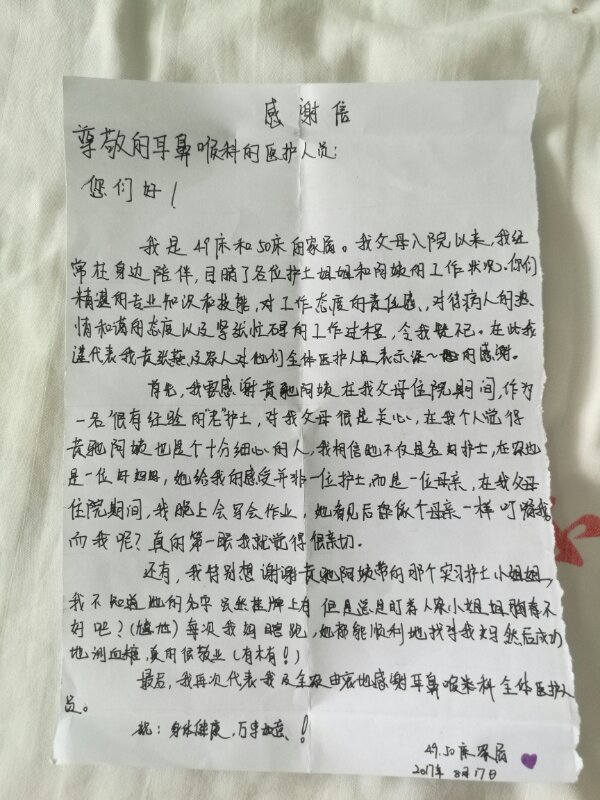 感谢信
尊敬的耳鼻喉科的医护人员:
您们好!
我是49床和50床的家属。我父母入院以来,我经
常在身边陪伴,目睹了各位护士姐姐和阿姨的工作状况。你们
精湛的专业知识和技能,对工作态度的责任感,对待病人的热
情和蔼的态度以及紧张忙碌的工作过程,令我难忘。在此我
谨代表我及家人对他们全体医护人员表示深深的感谢。
首先,我要感谢黄艳阿姨在我父母住院期间,作为
一名很有经验的"老"护士,对我父母很是关心,在我个人觉得
黄艳阿姨也是个十分细心的人,我相信她不仅是名好护士,在家也
是一位好妈妈,她给我的感受并非一位护士,而是一位母亲,在我父母
住院期间,我晚上会写会作业,她看见后都像个母亲一样叮嘱我
而我呢?真的第一眼我就觉得很亲切.
还有,我特别想谢谢黄艳阿姨带的那个实习护士小姐姐,
我不知道她的名字 虽然挂牌上有 但是总是盯着人家小姐姐胸看不
好吧?(尴尬)每次我妈瞎跑,她都能顺利地找到我妈然后成功
地测血糖,真的很敬业(有木有!)
最后,我再次代表我及全家由衷地感谢耳鼻喉科全体医护人
员。
祝:身体健康,万事如意!
49.50床家属
2017年8月17日